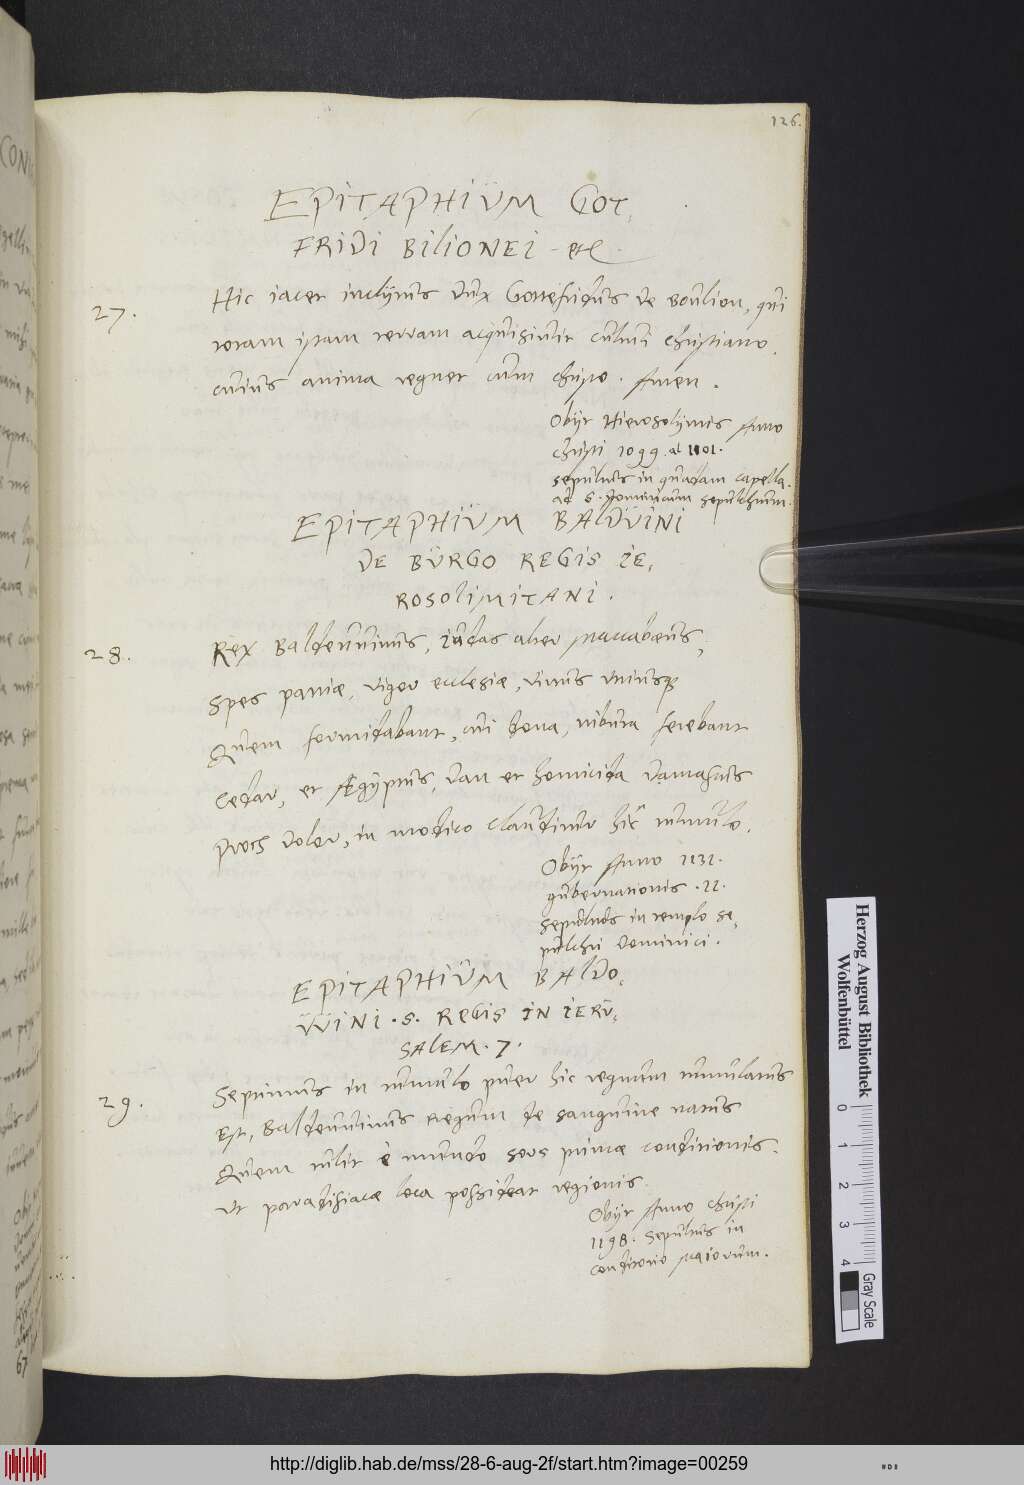 126.
EPITAPHIUM GOT,
FRIDI BILIONEI etc
27.
Hic iacet inclytus dux Gottefridus de Boulion, qui
totam istam terram acquisivit cultui christiano.
cuius anima regnet cum christo. Amen.
Obijt Hierosolymis Anno
christi 1099. al 1101.
sepultus in quadam capella.
ad S. Dominicum sepulchrum.
EPITAPHIUM BALDUINI
DE BURGO REGIS IE,
ROSOLIMITANI.
28.
Rex Baldeuuinus, iudas alter maccabeus,
Spes patriae, vigor ecclesiae, virtus utriusq
Quem formidabant, cui dona, tributa ferebant
Cedar, et AEgyptus, dan et homicida damascus
Proch dolor, in modico clauditur hic tumulo.
Obijt Anno 1131.
gubernationis . 12.
sepultus in templo se,
pulchri dominici.
EPITAPHIUM BALDO,
UUINI . S. REGIS IN IERU,
SALEM. 7.
29.
Septimus in tumulo puer hic regnum tumulatus
Est, Baldeuuinus Regum de sanguine natus
Quem tulit è mundo sors primae conditionis.
Ut paradisiacae loca possideat regionis.
Obijt Anno Christi
1198. Sepultus in
conditorio maiorum.
Herzog August Bibliothek
Wolfenbüttel
0 1 2 3 4
Gray Scale
http://diglib.hab.de/mss/28-6-aug-2f/start.htm?image=00259